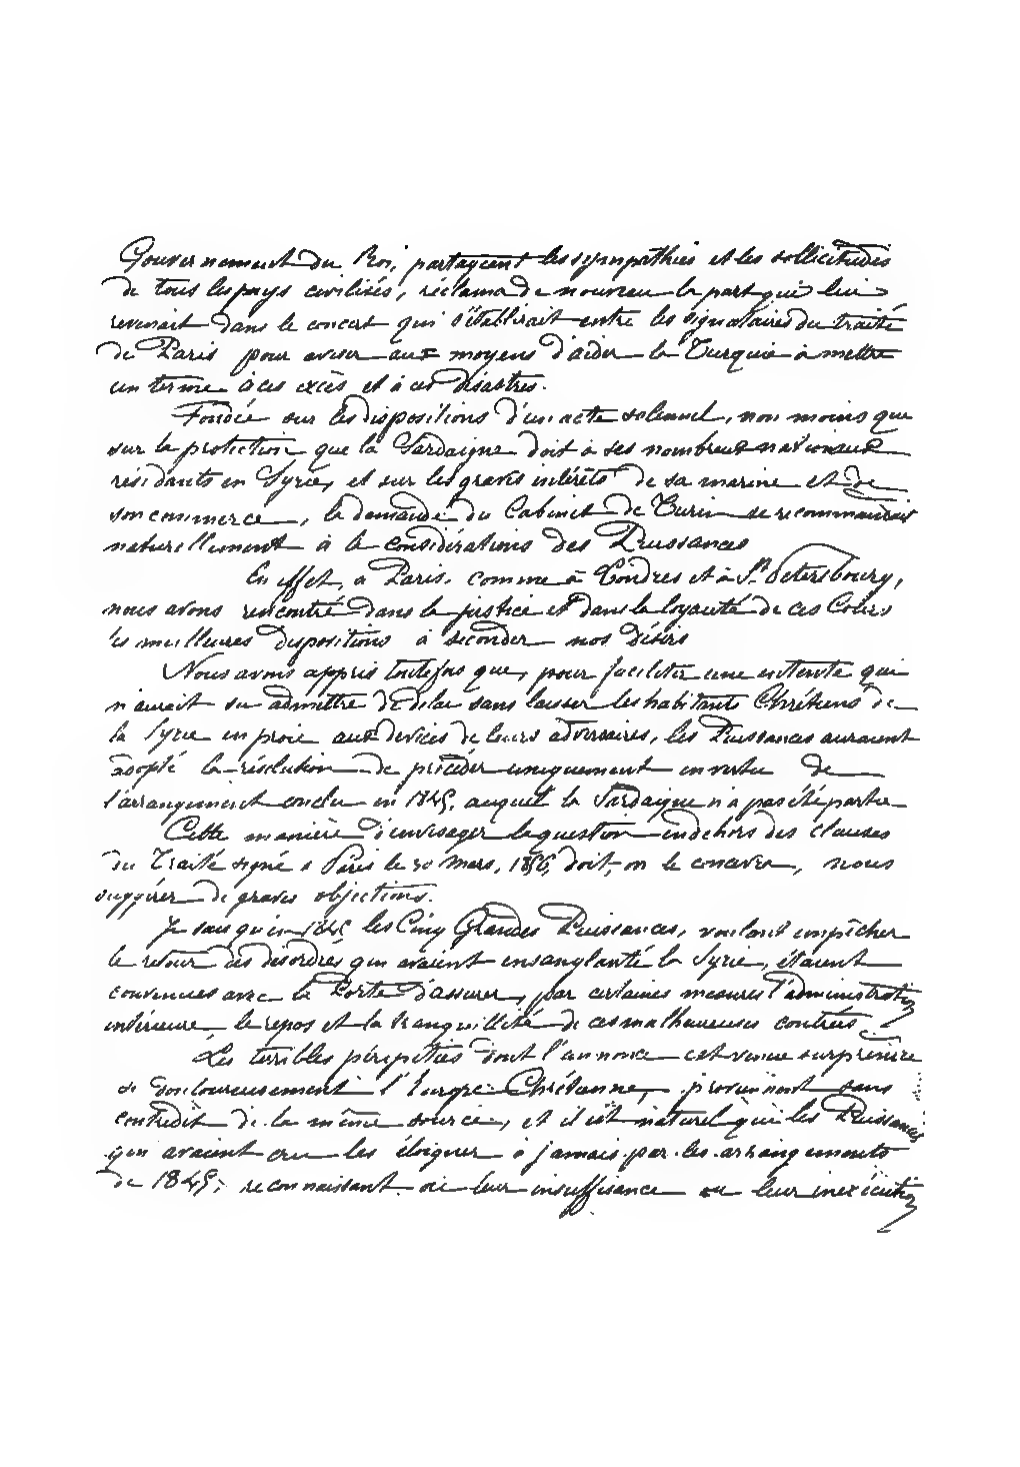 Gouvernement du Roi, partageant les sympathies et les sollicitudes
de tous les pays civilisés, réclama de nouveau la part qui lui
revenait dans le concert qui s'établirait entre les signataires du traité
de Paris pour aviser aux moyens d'aider la Turquie à mettre
un terme à ces excès et à ces désastres.
Fondée sur les dispositions d'un acte solennel, non moins que
sur la protection que la Sardaigne doit à ses nombreux nationaux
résidants en Syrie, et sur les graves intérêts de sa marine et de
son commerce, la demande du Cabinet de Turin se recommandait
naturellement à la considérations des Puissances
En effet, à Paris, comme à Londres et à St. Petersbourg,
nous avons rencontré dans la justice et dans la loyauté de ces Cours
les meilleures dispositions à seconder nos désirs
Nous avons appris toutefois que, pour faciliter une entente qui
n'aurait su admettre de délai sans laisser les habitants Chrétiens de
la Syrie en proie aux de leurs adversaires, les Puissances auraient
adopté la résolution de procéder uniquement en vertu de
l'arrangement conclu en 1845, auquel la Sardaigne n'a pas été partie
Cette manière d'envisager la question en dehors des clauses
du Traité signé à Paris le 30 Mars, 1856, doit, on le concevra, nous
suggérer de graves objections.
Je sais qu'en 1845 les Cinq Grandes Puissances, voulant empêcher
le retour des désordres qui avaient ensanglanté la Syrie, étaient
convenues avec la Porte d'assurer, par certaines mesures l'administration
intérieure, le repos et la tranquillité de ces malheureuses contrées.
Les terribles péripéties dont l'annonce est venue surprendre
si douloureusement l'Europe Chrétienne, proviennent sans
contredit de la même source, et il est naturel que les Puissances
qui avaient cru les éloigner à jamais par les arrangements
de 1845, reconnaissant ou leur insuffisance ou leur inexécution